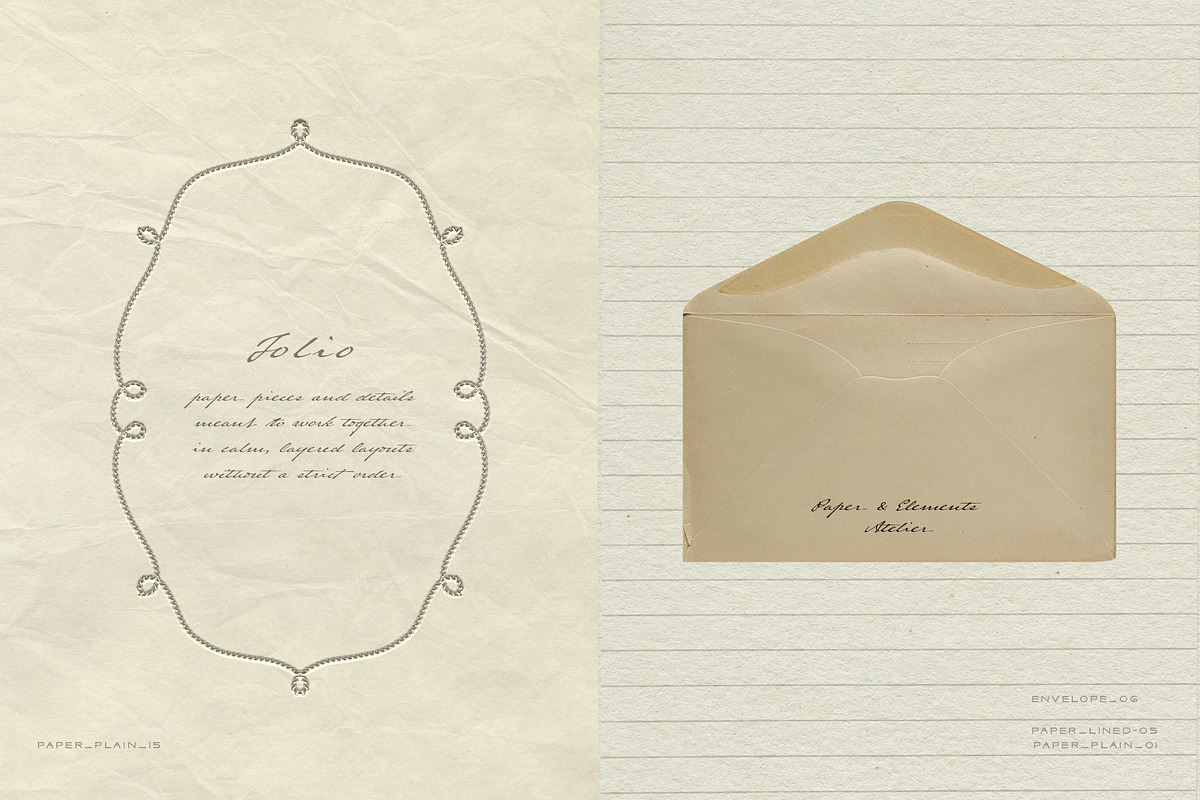 Folio
paper pieces and details
meant to work together
in calm, layered layouts
without a strict order
PAPER_PLAIN_15
Paper & Elements
Atelier
ENVELOPE_06
PAPER_LINED-05
PAPER_PLAIN_01